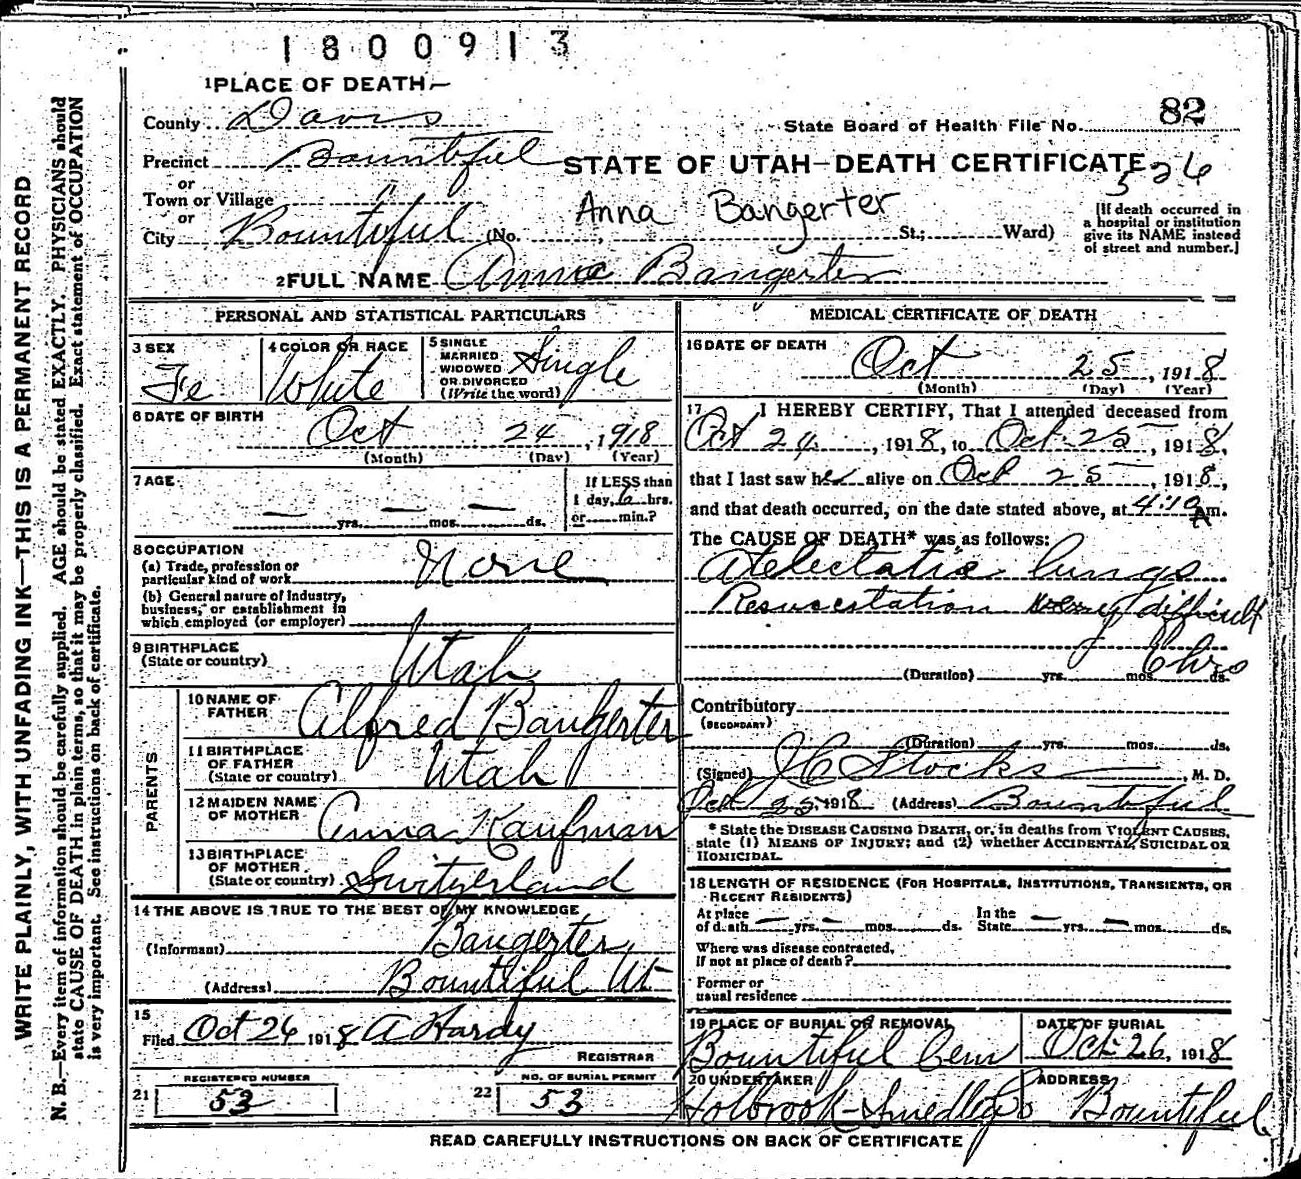 1800913
1 PLACE OF DEATH—
County Davis
82
State Board of Health File No.
Precinct Bountiful
STATE OF UTAH—DEATH CERTIFICATE
526
or
Town or Village
or
City Bountiful (No. , St.; Ward)
Anna Bangerter
[If death occurred in
a hospital or institution
give its NAME instead
of street and number.]
2 FULL NAME Anna Bangerter
PERSONAL AND STATISTICAL PARTICULARS
3 SEX
Fe
4 COLOR OR RACE
White
5 SINGLE
MARRIED
WIDOWED
OR DIVORCED
(Write the word)
Single
6 DATE OF BIRTH
Oct 24, 1918
(Month) (Day) (Year)
7 AGE
— yrs. — mos. — ds.
If LESS than
1 day, 6 hrs.
or min.?
8 OCCUPATION
(a) Trade, profession or
particular kind of work None
(b) General nature of industry,
business, or establishment in
which employed (or employer)
9 BIRTHPLACE
(State or country) Utah
PARENTS
10 NAME OF
FATHER Alfred Bangerter
11 BIRTHPLACE
OF FATHER
(State or country) Utah
12 MAIDEN NAME
OF MOTHER Anna Kaufman
13 BIRTHPLACE
OF MOTHER
(State or country) Switzerland
14 THE ABOVE IS TRUE TO THE BEST OF MY KNOWLEDGE
(Informant) Bangerter,
(Address) Bountiful Ut
15
Filed Oct 26 1918 A Hardy
REGISTRAR
REGISTERED NUMBER
21 53
NO. OF BURIAL PERMIT
22 53
MEDICAL CERTIFICATE OF DEATH
16 DATE OF DEATH
Oct 25, 1918
(Month) (Day) (Year)
17 I HEREBY CERTIFY, That I attended deceased from
Oct 24, 1918, to Oct 25, 1918,
that I last saw her alive on Oct 25, 1918,
and that death occurred, on the date stated above, at 4:10 Am.
The CAUSE OF DEATH* was as follows:
Atelectatis lungs
Resuscetation very difficult
6 hrs
(Duration) yrs. mos. ds.
Contributory
(SECONDARY)
(Duration) yrs. mos. ds.
(Signed) J C Stocks, M. D.
Oct 25, 1918 (Address) Bountiful
* State the DISEASE CAUSING DEATH, or, in deaths from VIOLENT CAUSES,
state (1) MEANS OF INJURY; and (2) whether ACCIDENTAL, SUICIDAL OR
HOMICIDAL.
18 LENGTH OF RESIDENCE (FOR HOSPITALS, INSTITUTIONS, TRANSIENTS, OR
RECENT RESIDENTS)
At place
of death — yrs. — mos. ds.
In the
State — yrs. — mos. ds.
Where was disease contracted,
if not at place of death?
Former or
usual residence
19 PLACE OF BURIAL OR REMOVAL
Bountiful Cem
DATE OF BURIAL
Oct 26, 1918
20 UNDERTAKER
Holbrook-Smedleys
ADDRESS
Bountiful
READ CAREFULLY INSTRUCTIONS ON BACK OF CERTIFICATE
WRITE PLAINLY, WITH UNFADING INK—THIS IS A PERMANENT RECORD
N. B.—Every item of information should be carefully supplied. AGE should be stated EXACTLY. PHYSICIANS should
state CAUSE OF DEATH in plain terms, so that it may be properly classified. Exact statement of OCCUPATION
is very important. See instructions on back of certificate.